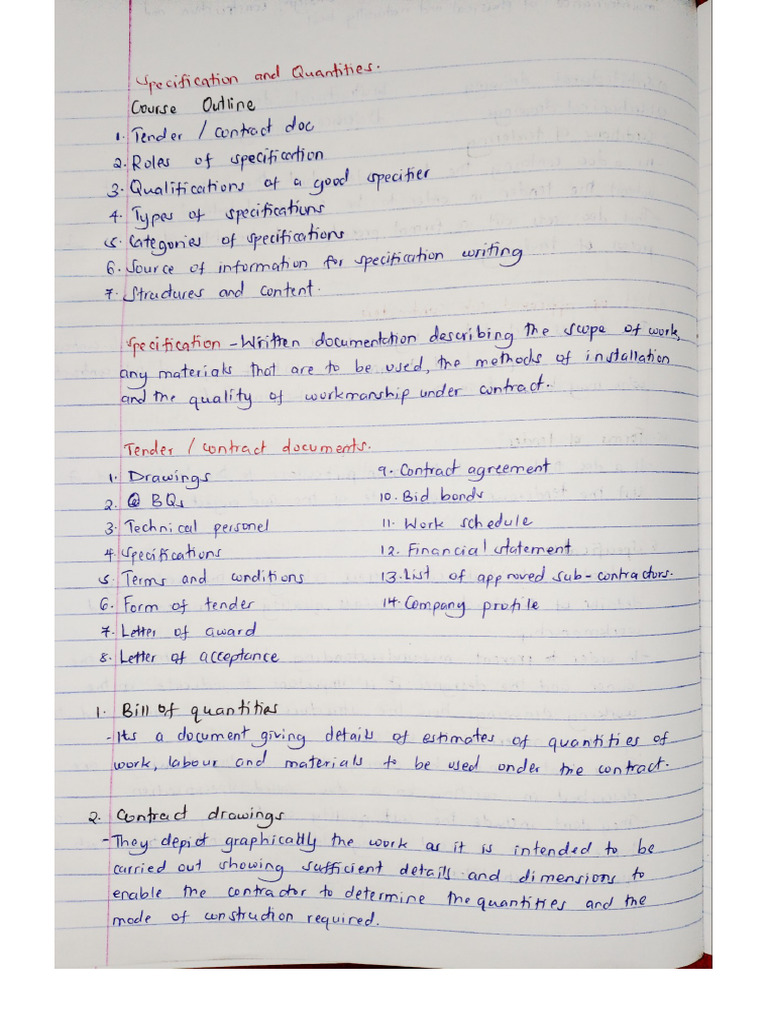 Specification and Quantities.
Course Outline
1. Tender / contract doc
2. Roles of specification
3. Qualifications of a good specifier
4. Types of specifications
5. Categories of specifications
6. Source of information for specification writing
7. Structures and content.
Specification - Written documentation describing the scope of work,
any materials that are to be used, the methods of installation
and the quality of workmanship under contract.
Tender / contract documents.
1. Drawings
2. BQs
3. Technical personel
4. Specifications
5. Terms and conditions
6. Form of tender
7. Letter of award
8. Letter of acceptance
9. Contract agreement
10. Bid bonds
11. Work schedule
12. Financial statement
13. List of approved sub-contractors.
14. Company profile
1. Bill of quantities
- Its a document giving details of estimates of quantities of
work, labour and materials to be used under the contract.
2. Contract drawings
- They depict graphically the work as it is intended to be
carried out showing sufficient details and dimensions to
enable the contractor to determine the quantities and the
mode of construction required.